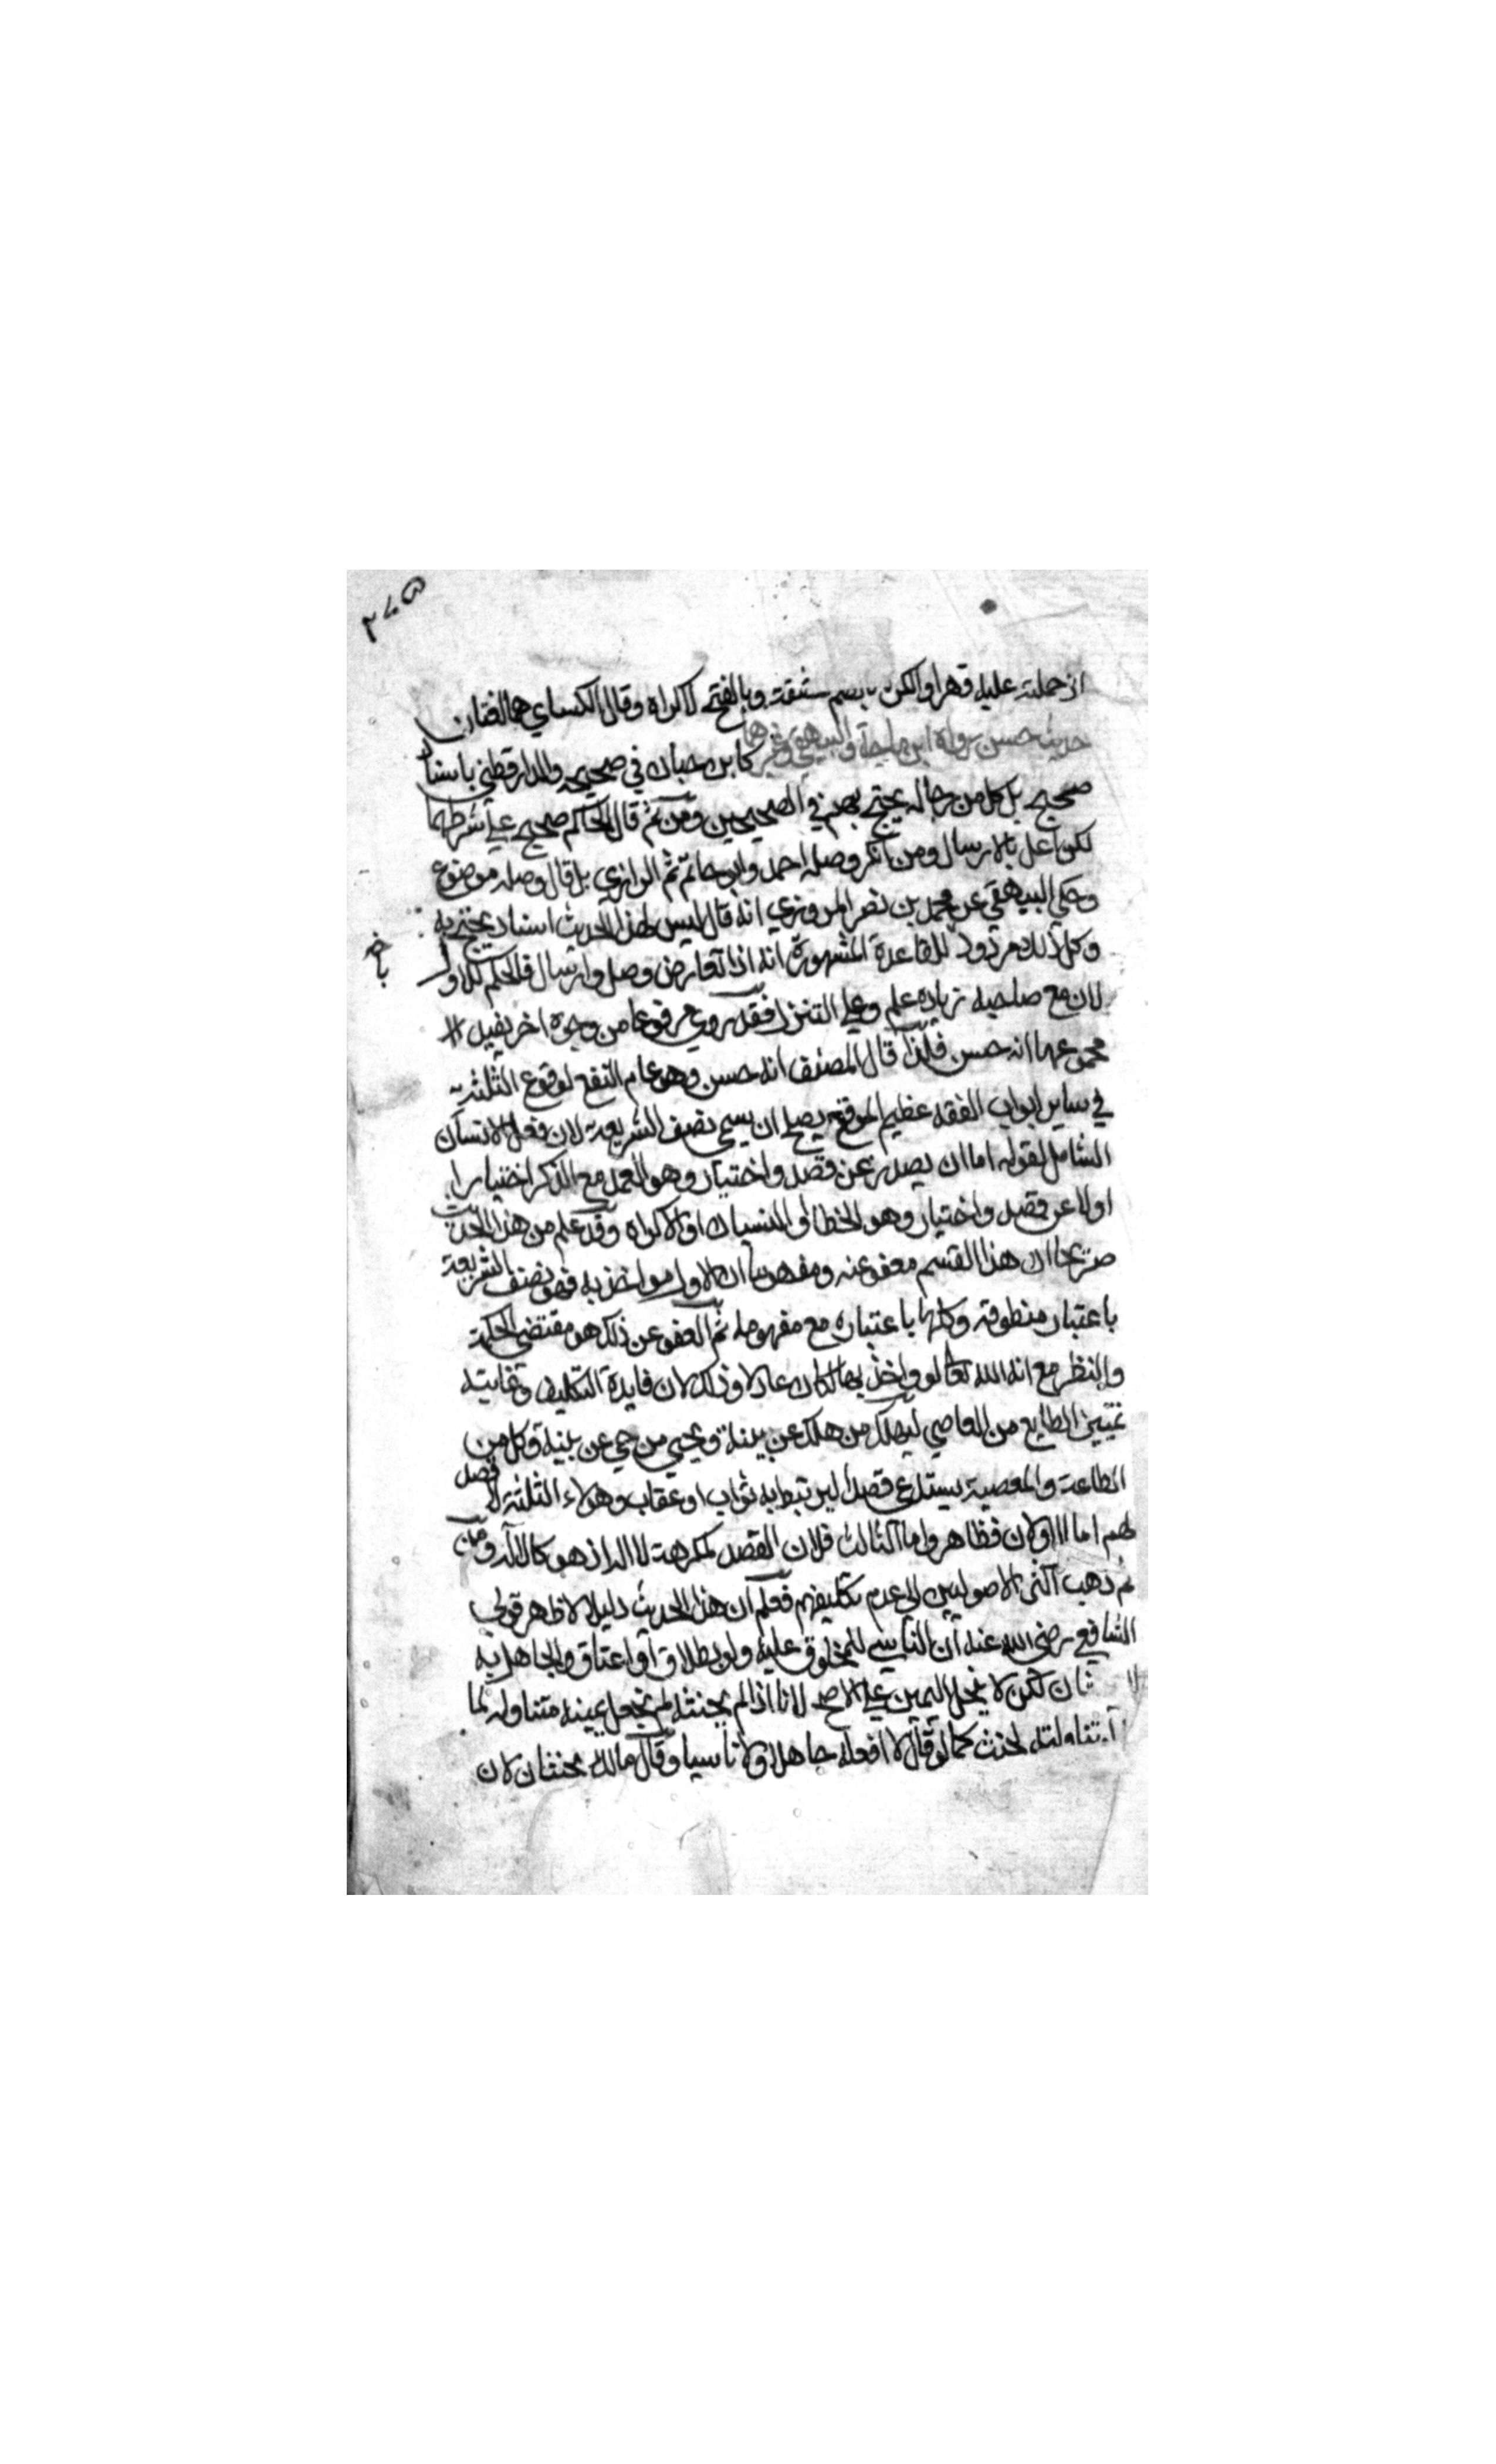 ٢٨٥
اذ حملته عليه قهرا والكره بالضم مشقة وبالفتح الاكراه وقال الكساي هما لغتان
حديث حسن رواه ابن ماجة والبيهقي وغيرهما كابن حبان في صحيحه والدارقطني باسناد
صحيح بل كل من رجاله يحتج بهم في الصحيحين ومن ثم قال الحاكم صحيح علي شرطهما
لكن اعل بالارسال ومن انكر وصله احمد وابو حاتم ثم الرازي بل قال وصله موضوع
وحكي البيهقي عن محمد بن نصر المروزي انه قال ليس لهذا الحديث اسناد يحتج به
وكل ذلك مردود للقاعدة المشهورة انه اذا تعارض وصل وارسال فالحكم للاول
لان مع صاحبه زيادة علم وعلي التنزل فقد روي مرفوعا من وجوه اخر يفيد
مجموعها انه حسن فلذا قال المصنف انه حسن وهو عام النفع لوقوع الثلثة
في ساير ابواب الفقه عظيم الموقع يصلح ان يسمي نصف الشريعة لان فعل الانسان
الشامل لقوله اما ان يصدر عن قصد واختيار وهو العمد مع الذكر اختيارا
اولا عن قصد واختيار وهو الخطا او النسيان او الاكراه وقد علم من هذا الحديث
صريحا ان هذا القسم معفو عنه ومفهوما ان الاول مواخذ به فهو نصف الشريعة
باعتبار منطوقه وكلها باعتباره مع مفهومه ثم العفو عن ذلك هو مقتضي الحكمة
والنظر مع انه الله تعالي لو واخذ بها لكان عادلا وذلك لان فايدة التكليف وغايته
تمييز الطايع من العاصي ليهلك من هلك عن بينة ويحيي من حي عن بينة وكل من
الطاعة والمعصية يستدعي قصدا ليرتبط به ثواب او عقاب وهولاء الثلثة لا قصد
لهم اما الاولان فظاهر واما الثالث فلان القصد لمكرهه لا له اذ هو كالآلة ومن
ثم ذهب اكثر الاصوليين الي عدم تكليفهم فعلم ان هذا الحديث دليل لاظهر قولي
الشافعي رضي الله عنه ان الناسي للمحلوف عليه ولو بطلاق او اعتاق والجاهل به
لا ثان لكن لا تنحل اليمين علي الاصح لانا اذا لم نحنثه لم نجعل يمينه متناولة لما
تناولته لحنث كما لو قال لا افعله جاهلا ولا ناسيا وقال مالك يحنثان لان